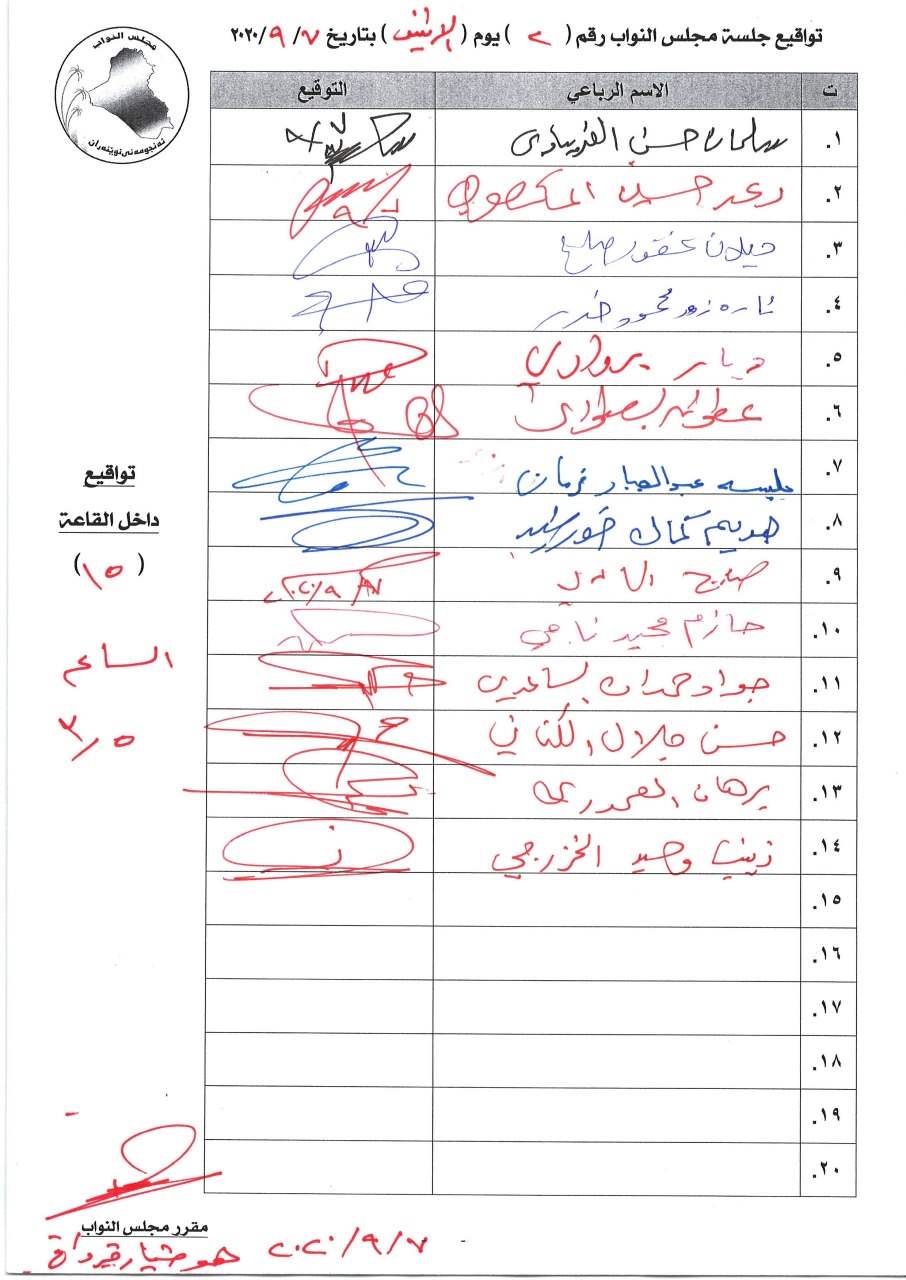 تواقيع جلسة مجلس النواب رقم ( ٢ ) يوم ( الاثنين ) بتاريخ ٢٠٢٠/٩/٧
مجلس النواب
ئه نجومه نی نوێنه ران
ت الاسم الرباعي التوقيع
١. سلمان حسن
٢. رعد حسين
٣. ديلان غفور صالح
٤. ئاره زوو محمود خدر
٥. ديار برواري
٦.
٧. بليسه عبد الجبار فرمان
٨. هريم كمال خورشيد
٩. ٢٠٢٠/٩/٧
١٠. حازم مجيد
١١. جواد حمدان الساعدي
١٢. حسن جلال الكناني
١٣. برهان المعموري
١٤. زينب وحيد الخزرجي
١٥.
١٦.
١٧.
١٨.
١٩.
٢٠.
تواقيع
داخل القاعة
( ١٥ )
الساعة
٣/٥
مقرر مجلس النواب
هوشيار قرداغ ٢٠٢٠/٩/٧